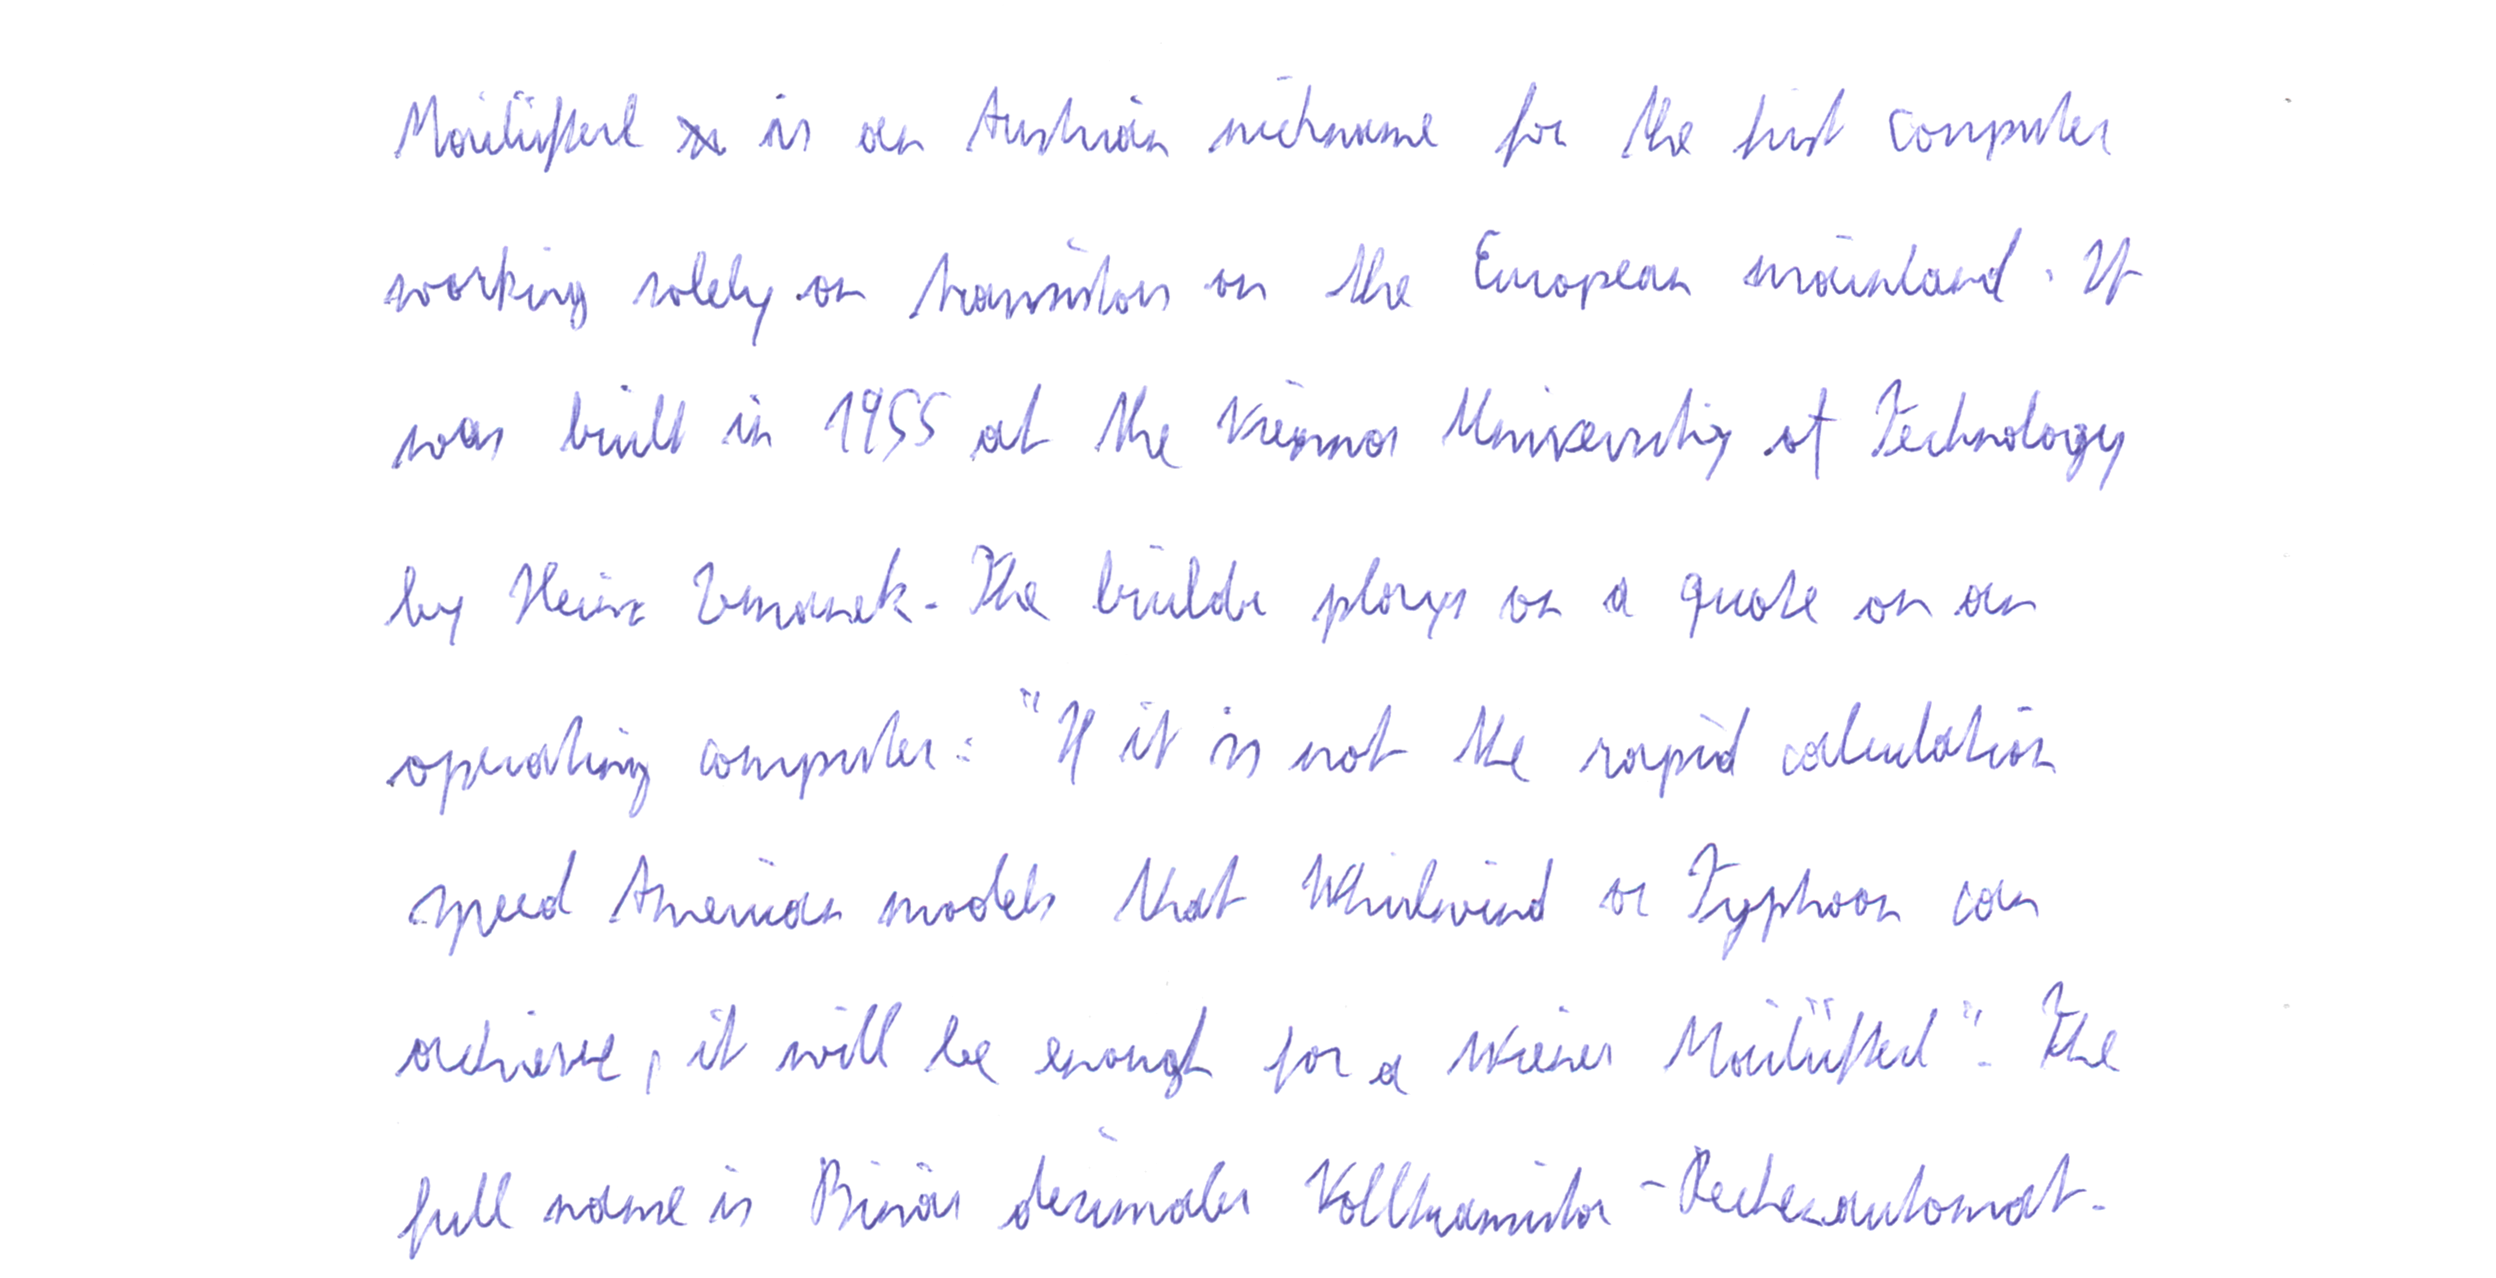 Mailüfterl is an Austrian nickname for the first computer
working solely on transistors on the European mainland. It
was built in 1955 at the Vienna University of Technology
by Heinz Zemanek. The builder plays on a quote on an
operating computer: "If it is not the rapid calculation
speed American models that Whirlwind or Typhoon can
achieve, it will be enough for a Wiener Mailüfterl". The
full name is Binär dezimaler Volltransistor-Rechenautomat.